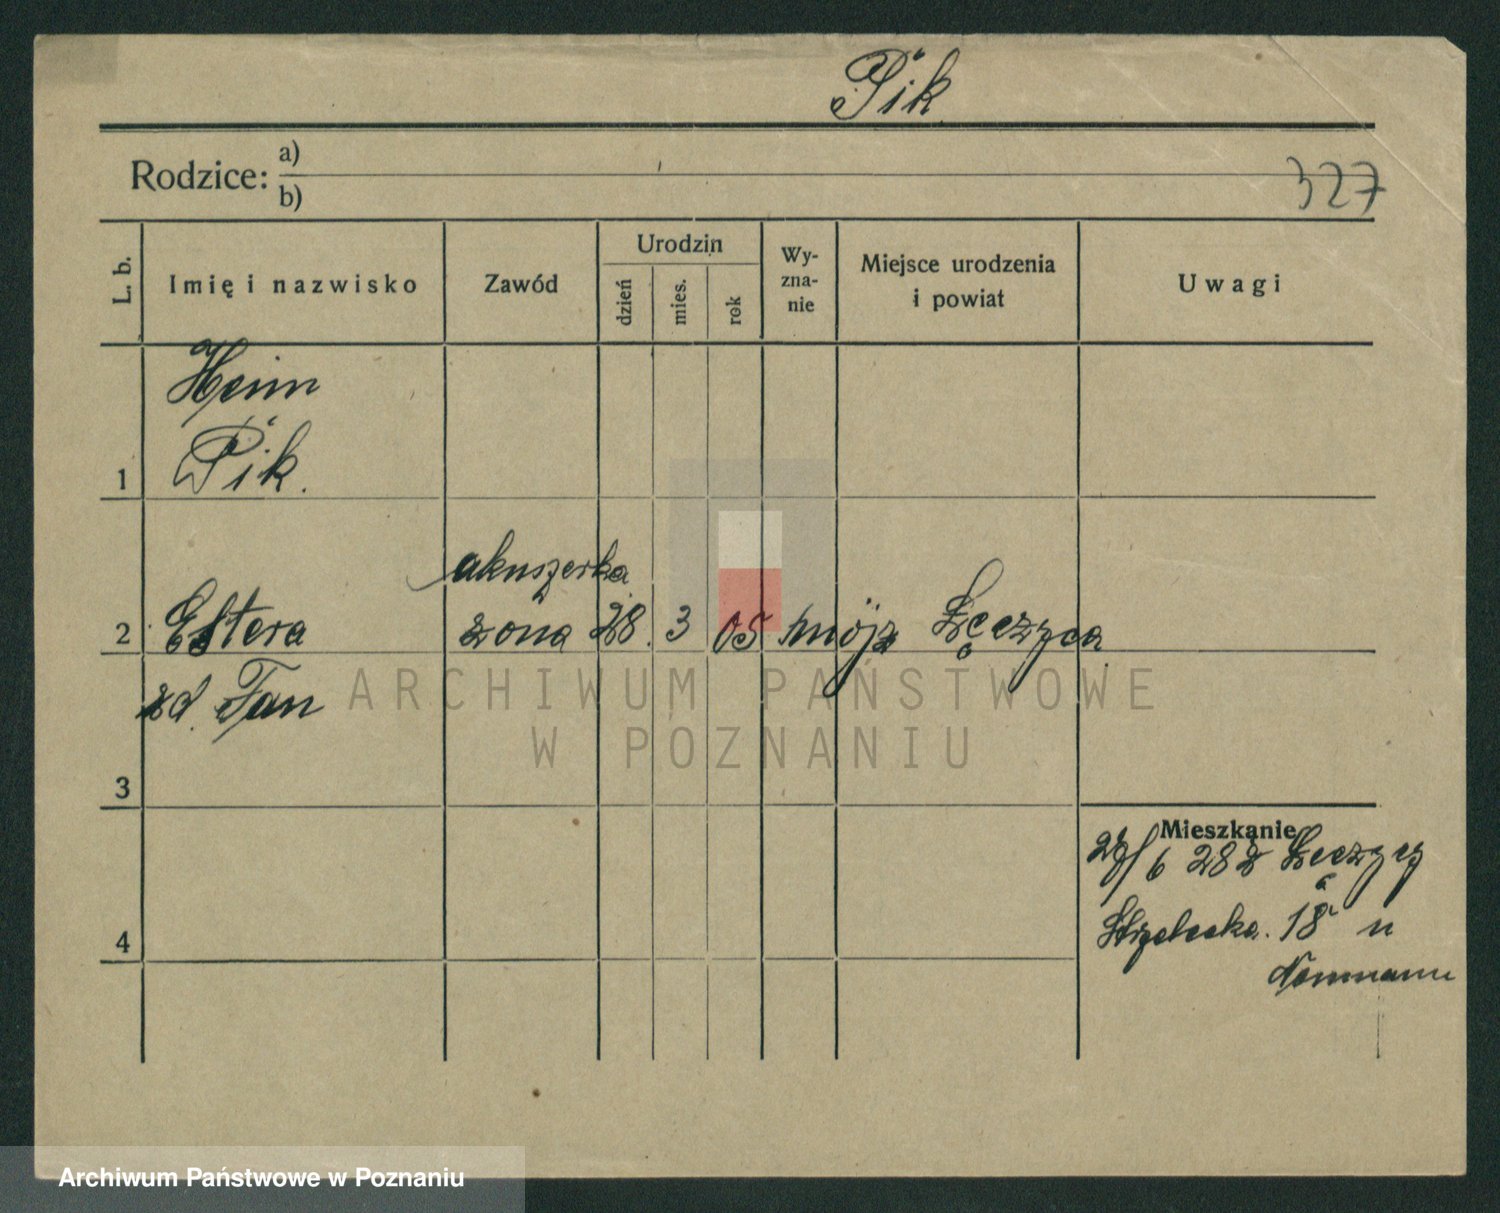 Pik
Rodzice: a)
b)
327
L. b.
Imię i nazwisko
Zawód
Urodzin
dzień
mies.
rok
Wy-
zna-
nie
Miejsce urodzenia
i powiat
Uwagi
Heim
1 Pik.
akuszerka
2 Estera żona 28. 3 05 mojż Łęczyca
zd. Fan
3
4
Mieszkanie
6 28 z Łęczycy
Strzelecka. 18 u
Nemmanu
ARCHIWUM PAŃSTWOWE
W POZNANIU
Archiwum Państwowe w Poznaniu